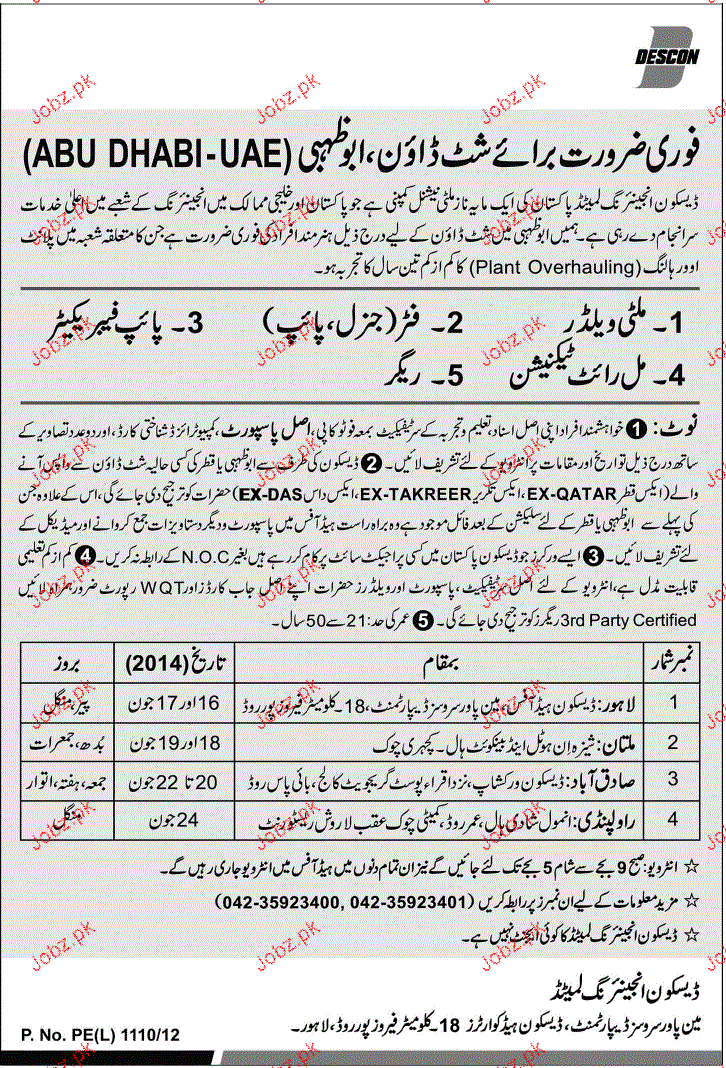 DESCON
فوری ضرورت برائے شٹ ڈاؤن، ابوظہبی (ABU DHABI-UAE)
ڈیسکون انجینئرنگ لمیٹڈ پاکستان کی ایک مایہ ناز ملٹی نیشنل کمپنی ہے جو پاکستان اور خلیجی ممالک میں انجینئرنگ کے شعبے میں اعلیٰ خدمات
سرانجام دے رہی ہے۔ ہمیں ابوظہبی میں شٹ ڈاؤن کے لیے درج ذیل ہنرمند افراد کی فوری ضرورت ہے جن کا متعلقہ شعبہ میں پلانٹ
اوورہالنگ (Plant Overhauling) کا کم از کم تین سال کا تجربہ ہو۔
1۔ ملٹی ویلڈر 2۔ فٹر (جنرل، پائپ) 3۔ پائپ فیبریکیٹر
4۔ مل رائٹ ٹیکنیشن 5۔ ریگر
نوٹ: 1 خواہشمند افراد اپنی اصل اسناد، تعلیم و تجربہ کے سرٹیفکیٹ بمعہ فوٹو کاپی، اصل پاسپورٹ، کمپیوٹرائزڈ شناختی کارڈ، اور دو عدد تصاویر کے
ساتھ درج ذیل تواریخ اور مقامات پر انٹرویو کے لئے تشریف لائیں۔ 2 ڈیسکون کی طرف سے ابوظہبی یا قطر کی کسی حالیہ شٹ ڈاؤن سے واپس آنے
والے (ایکس قطر EX-QATAR، ایکس تکریر EX-TAKREER، ایکس داس EX-DAS) حضرات کو ترجیح دی جائے گی، اس کے علاوہ جن
کی پہلے سے ابوظہبی یا قطر کے لئے سلیکشن کے بعد فائل موجود ہے وہ براہ راست ہیڈ آفس میں پاسپورٹ و دیگر دستاویزات جمع کروانے اور میڈیکل کے
لئے تشریف لائیں۔ 3 ایسے ورکرز جو ڈیسکون پاکستان میں کسی پراجیکٹ سائٹ پر کام کر رہے ہیں بغیر N.O.C کے رابطہ نہ کریں۔ 4 کم از کم تعلیمی
قابلیت مڈل ہے، انٹرویو کے لئے اصل سرٹیفکیٹ، پاسپورٹ اور ویلڈرز حضرات اپنے اصل جاب کارڈز اور WQT رپورٹ ضرور ہمراہ لائیں
3rd Party Certified ریگرز کو ترجیح دی جائے گی۔ 5 عمر کی حد: 21 سے 50 سال۔
نمبر شمار بمقام تاریخ (2014) بروز
1 لاہور: ڈیسکون ہیڈ آفس، مین پاور سروسز ڈیپارٹمنٹ، 18۔ کلومیٹر فیروز پور روڈ 16 اور 17 جون پیر، منگل
2 ملتان: شیزہ اِن ہوٹل اینڈ بینکوئٹ ہال۔ کچہری چوک 18 اور 19 جون بُدھ، جمعرات
3 صادق آباد: ڈیسکون ورکشاپ، نزد اقراء پوسٹ گریجویٹ کالج، بائی پاس روڈ 20 تا 22 جون جمعہ، ہفتہ، اتوار
4 راولپنڈی: انمول شادی ہال، عمر روڈ، کمیٹی چوک عقب لاروش ریسٹورنٹ 24 جون منگل
☆ انٹرویو: صبح 9 بجے سے شام 5 بجے تک لئے جائیں گے نیز ان تمام دنوں میں ہیڈ آفس میں انٹرویو جاری رہیں گے۔
☆ مزید معلومات کے لیے ان نمبرز پر رابطہ کریں (042-35923400, 042-35923401)
☆ ڈیسکون انجینئرنگ لمیٹڈ کا کوئی ایجنٹ نہیں ہے۔
ڈیسکون انجینئرنگ لمیٹڈ
مین پاور سروسز ڈیپارٹمنٹ، ڈیسکون ہیڈ کوارٹرز 18۔ کلومیٹر فیروز پور روڈ، لاہور۔
P. No. PE(L) 1110/12
Jobz.pk